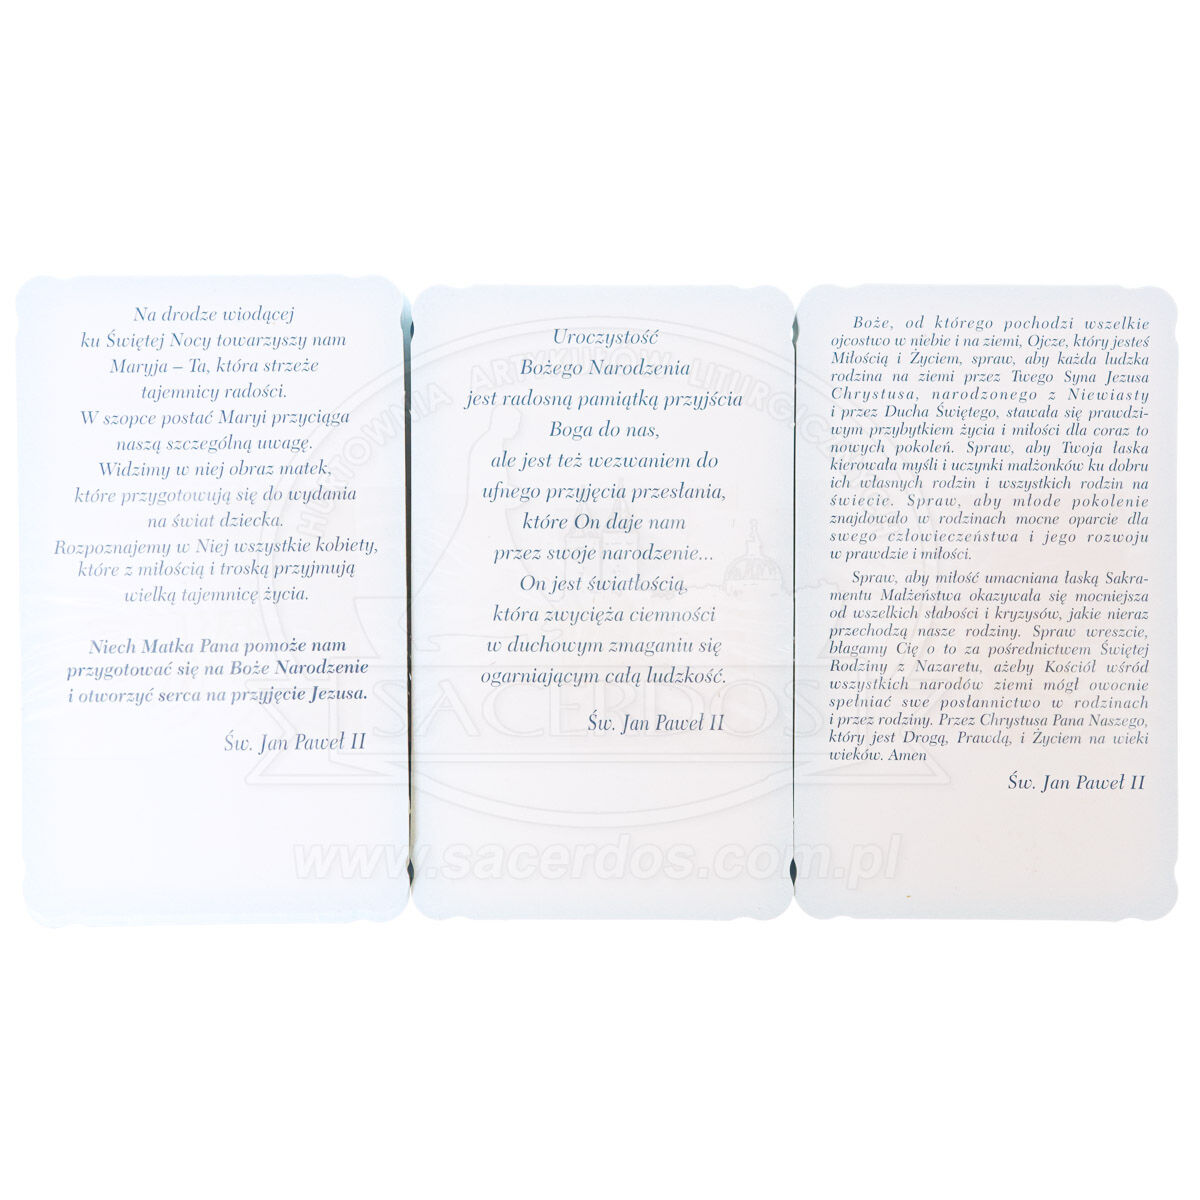 Na drodze wiodącej
ku Świętej Nocy towarzyszy nam
Maryja – Ta, która strzeże
tajemnicy radości.
W szopce postać Maryi przyciąga
naszą szczególną uwagę.
Widzimy w niej obraz matek,
które przygotowują się do wydania
na świat dziecka.
Rozpoznajemy w Niej wszystkie kobiety,
które z miłością i troską przyjmują
wielką tajemnicę życia.
Niech Matka Pana pomoże nam
przygotować się na Boże Narodzenie
i otworzyć serca na przyjęcie Jezusa.
Św. Jan Paweł II
Uroczystość
Bożego Narodzenia
jest radosną pamiątką przyjścia
Boga do nas,
ale jest też wezwaniem do
ufnego przyjęcia przesłania,
które On daje nam
przez swoje narodzenie...
On jest światłością,
która zwycięża ciemności
w duchowym zmaganiu się
ogarniającym całą ludzkość.
Św. Jan Paweł II
Boże, od którego pochodzi wszelkie
ojcostwo w niebie i na ziemi, Ojcze, który jesteś
Miłością i Życiem, spraw, aby każda ludzka
rodzina na ziemi przez Twego Syna Jezusa
Chrystusa, narodzonego z Niewiasty
i przez Ducha Świętego, stawała się prawdzi-
wym przybytkiem życia i miłości dla coraz to
nowych pokoleń. Spraw, aby Twoja łaska
kierowała myśli i uczynki małżonków ku dobru
ich własnych rodzin i wszystkich rodzin na
świecie. Spraw, aby młode pokolenie
znajdowało w rodzinach mocne oparcie dla
swego człowieczeństwa i jego rozwoju
w prawdzie i miłości.
Spraw, aby miłość umacniana łaską Sakra-
mentu Małżeństwa okazywała się mocniejsza
od wszelkich słabości i kryzysów, jakie nieraz
przechodzą nasze rodziny. Spraw wreszcie,
błagamy Cię o to za pośrednictwem Świętej
Rodziny z Nazaretu, ażeby Kościół wśród
wszystkich narodów ziemi mógł owocnie
spełniać swe posłannictwo w rodzinach
i przez rodziny. Przez Chrystusa Pana Naszego,
który jest Drogą, Prawdą, i Życiem na wieki
wieków. Amen
Św. Jan Paweł II
HURTOWNIA ARTYKUŁÓW LITURGICZNYCH
SACERDOS
www.sacerdos.com.pl